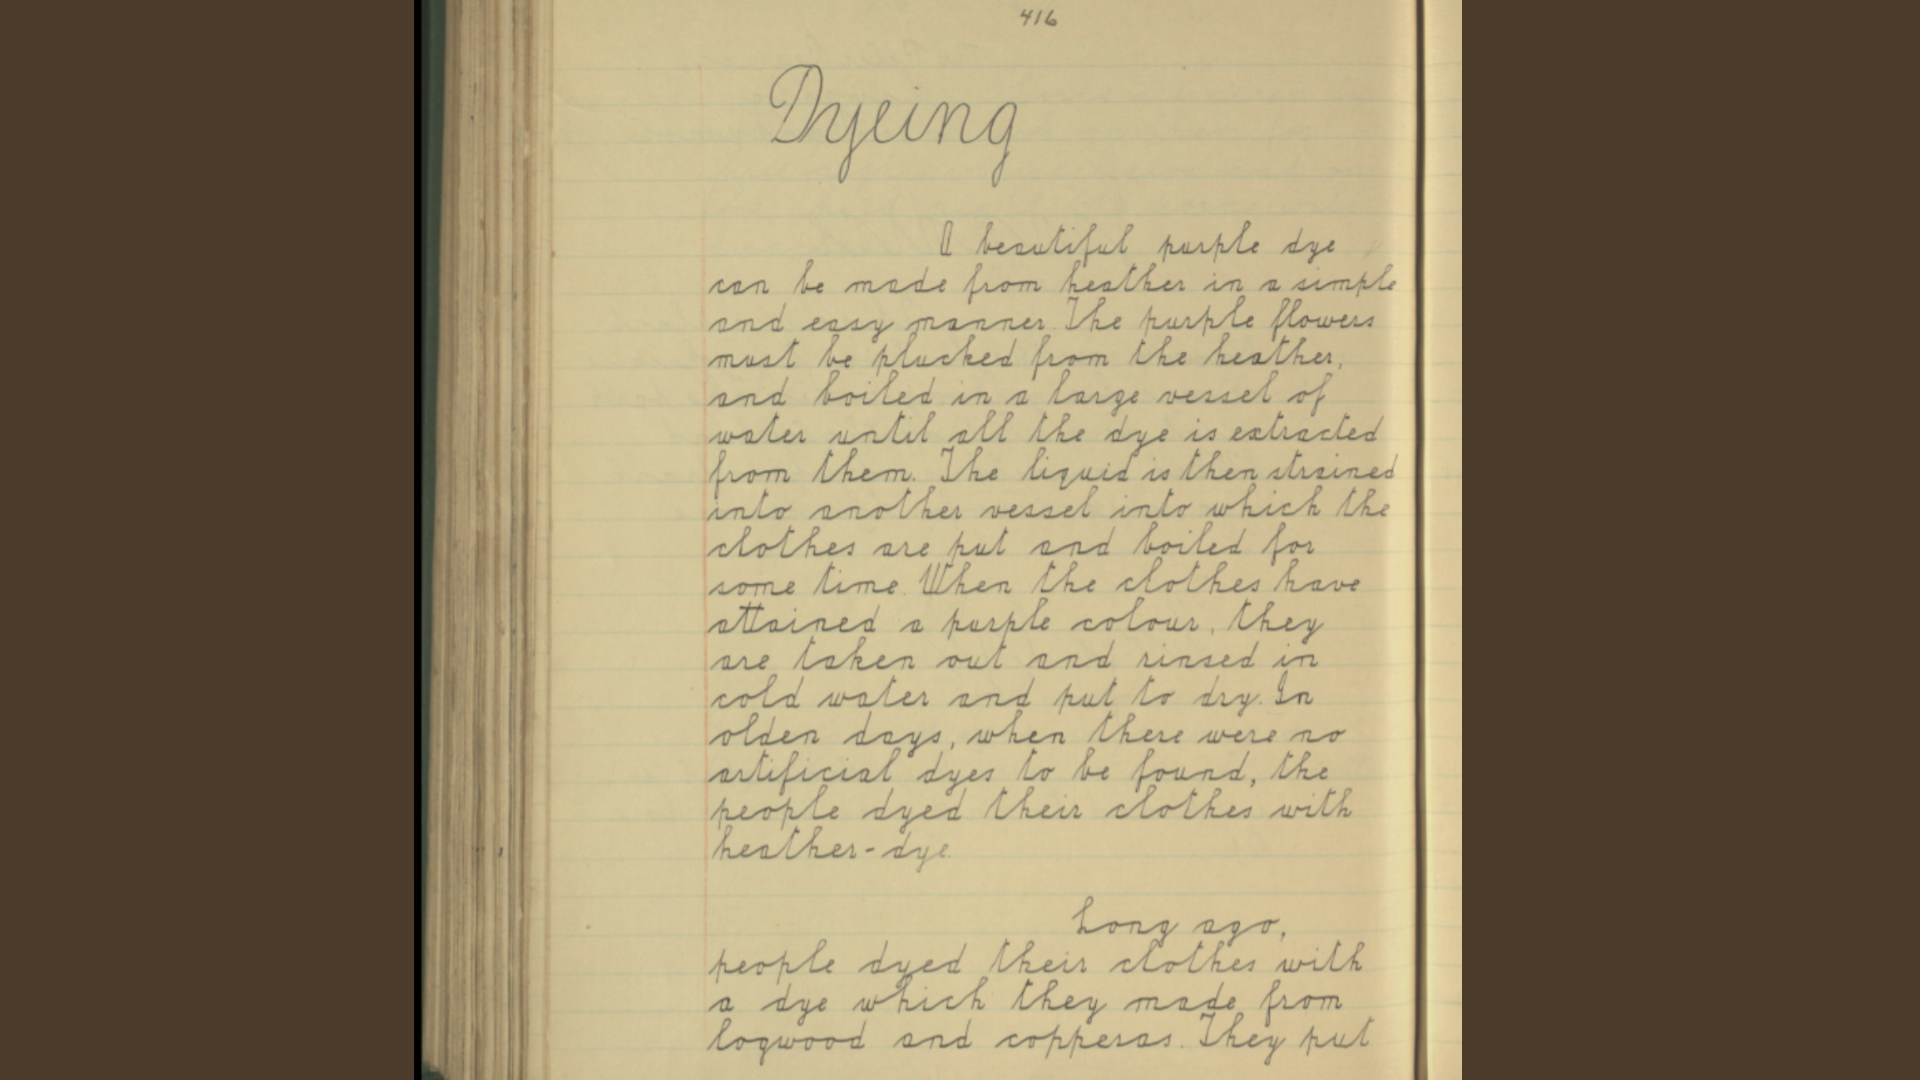 416
Dyeing
A beautiful purple dye
can be made from heather in a simple
and easy manner. The purple flowers
must be plucked from the heather,
and boiled in a large vessel of
water until all the dye is extracted
from them. The liquid is then strained
into another vessel into which the
clothes are put and boiled for
some time. When the clothes have
attained a purple colour, they
are taken out and rinsed in
cold water and put to dry. In
olden days, when there were no
artificial dyes to be found, the
people dyed their clothes with
heather-dye.
Long ago,
people dyed their clothes with
a dye which they made from
logwood and copperas. They put